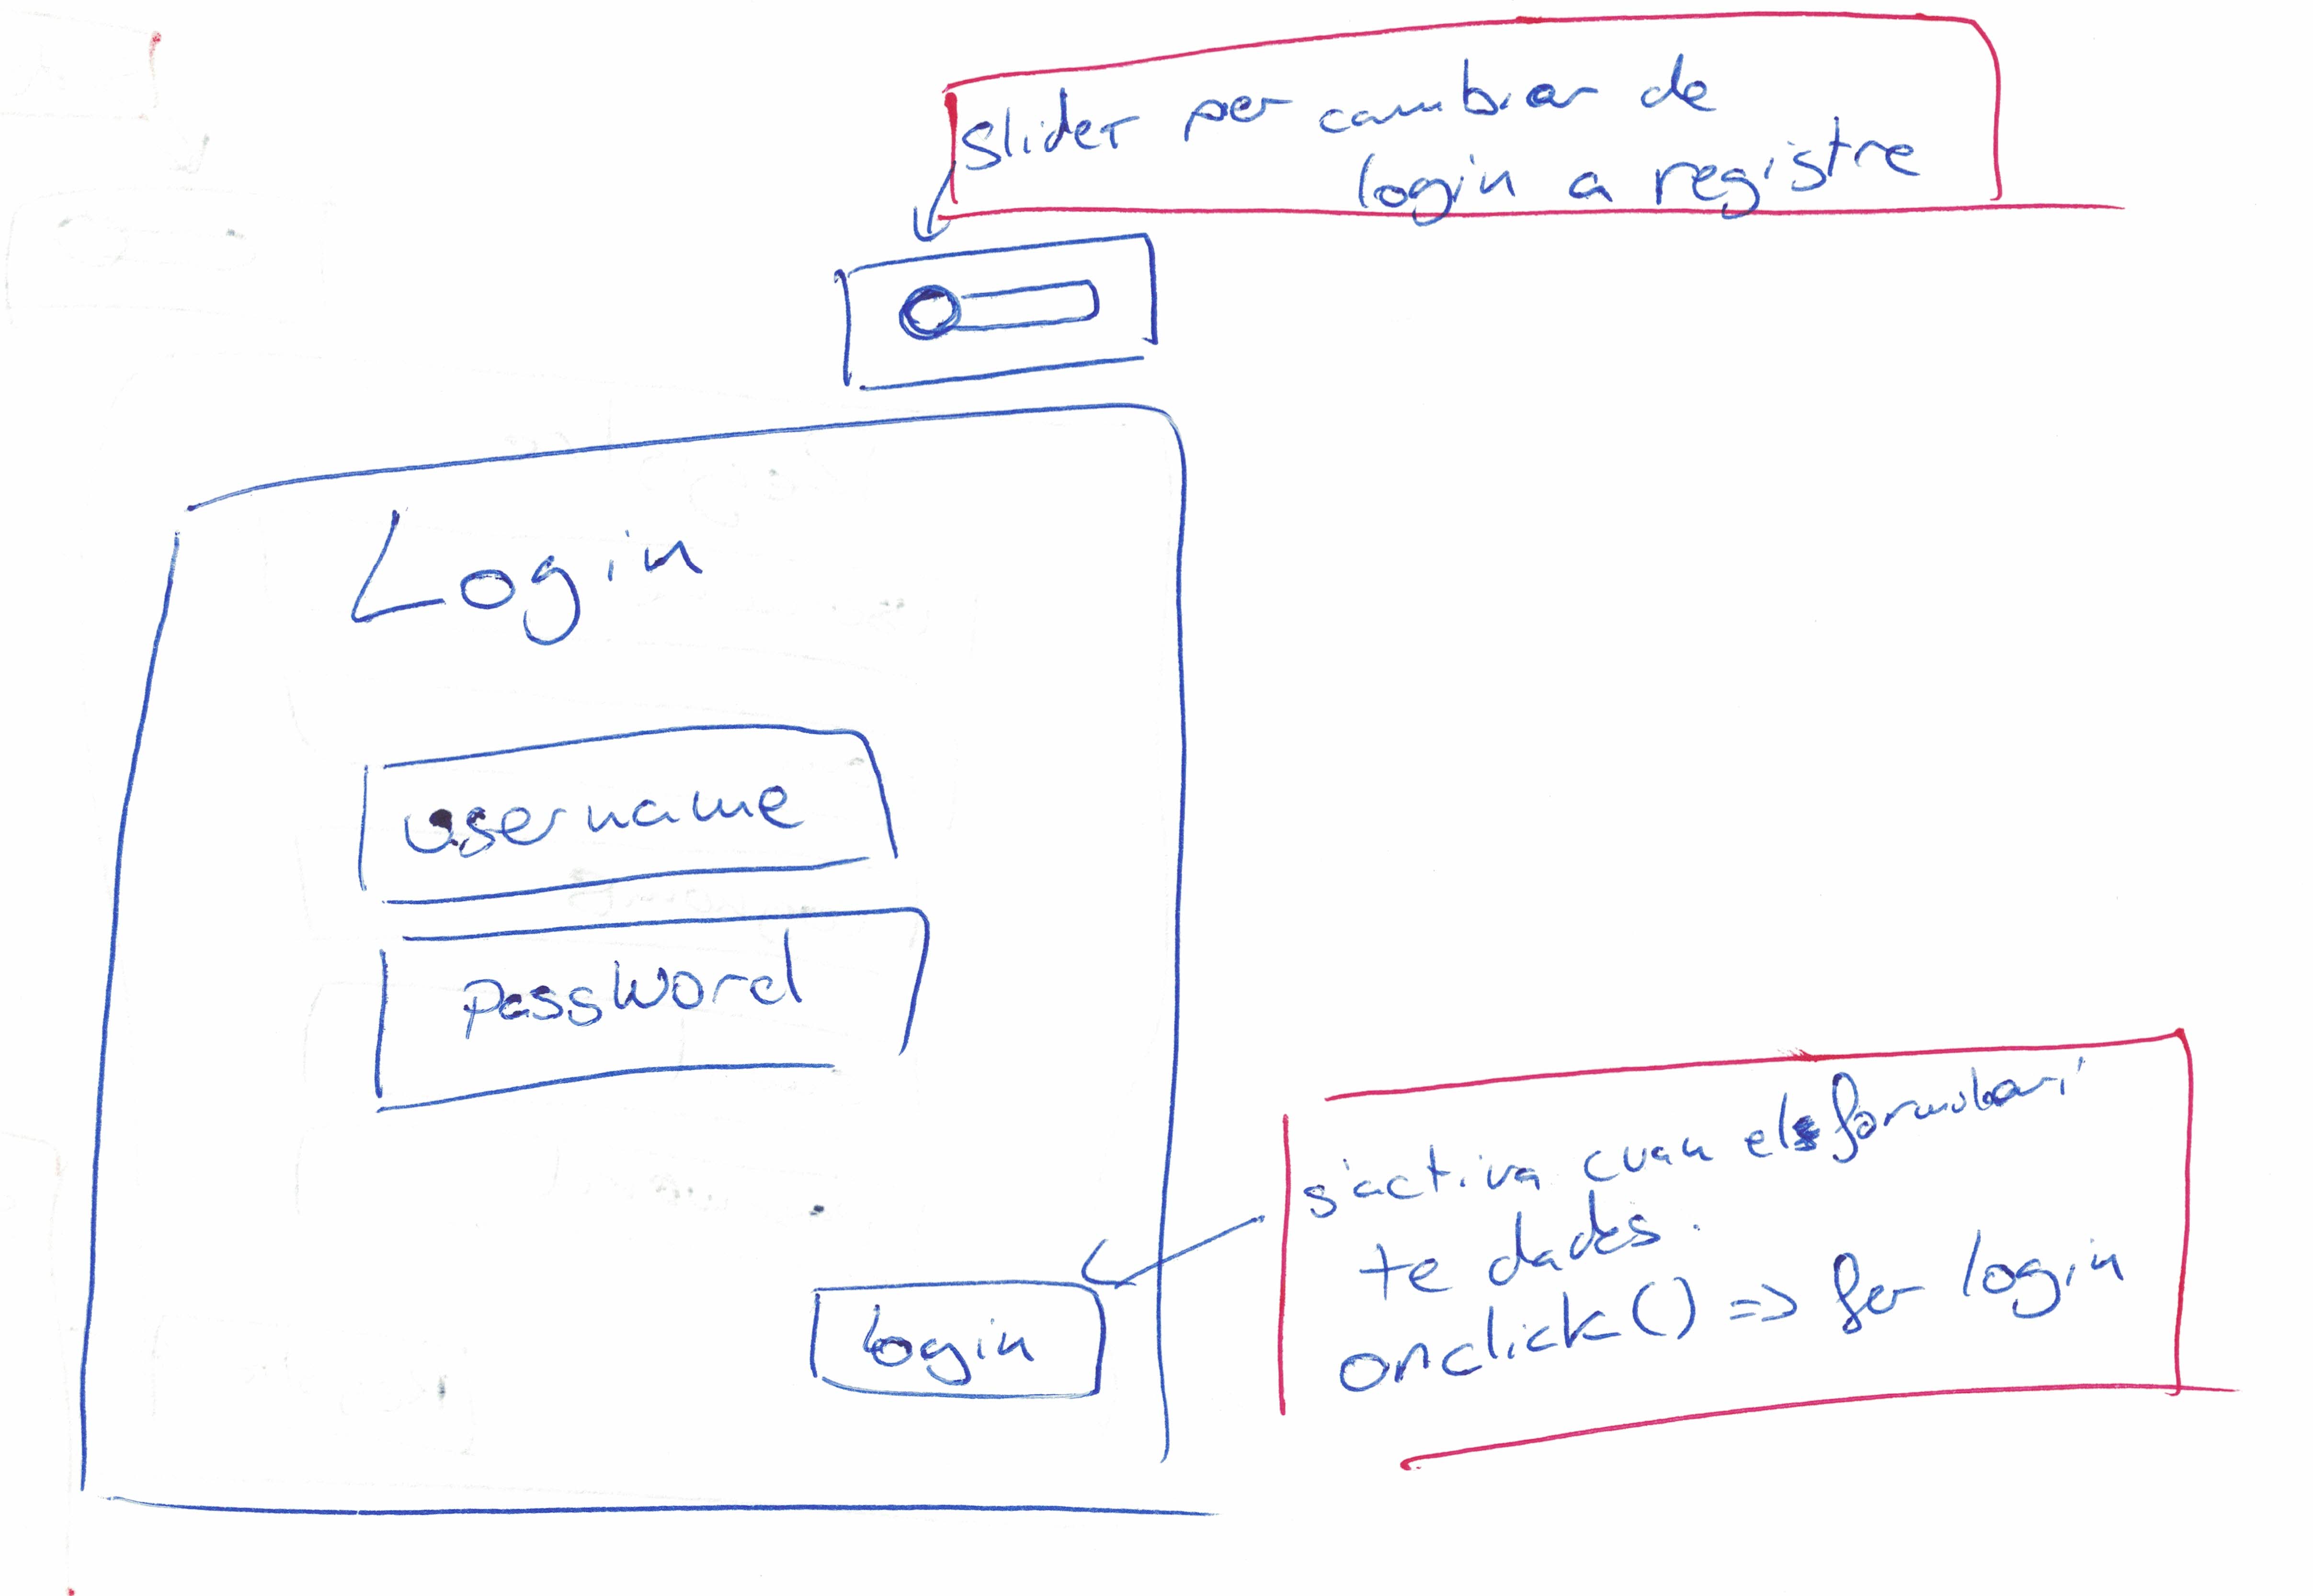 slider per cambiar de
login a registre
Login
username
password
s'activa cuan el formulari
te dades.
onclick() => fer login
login